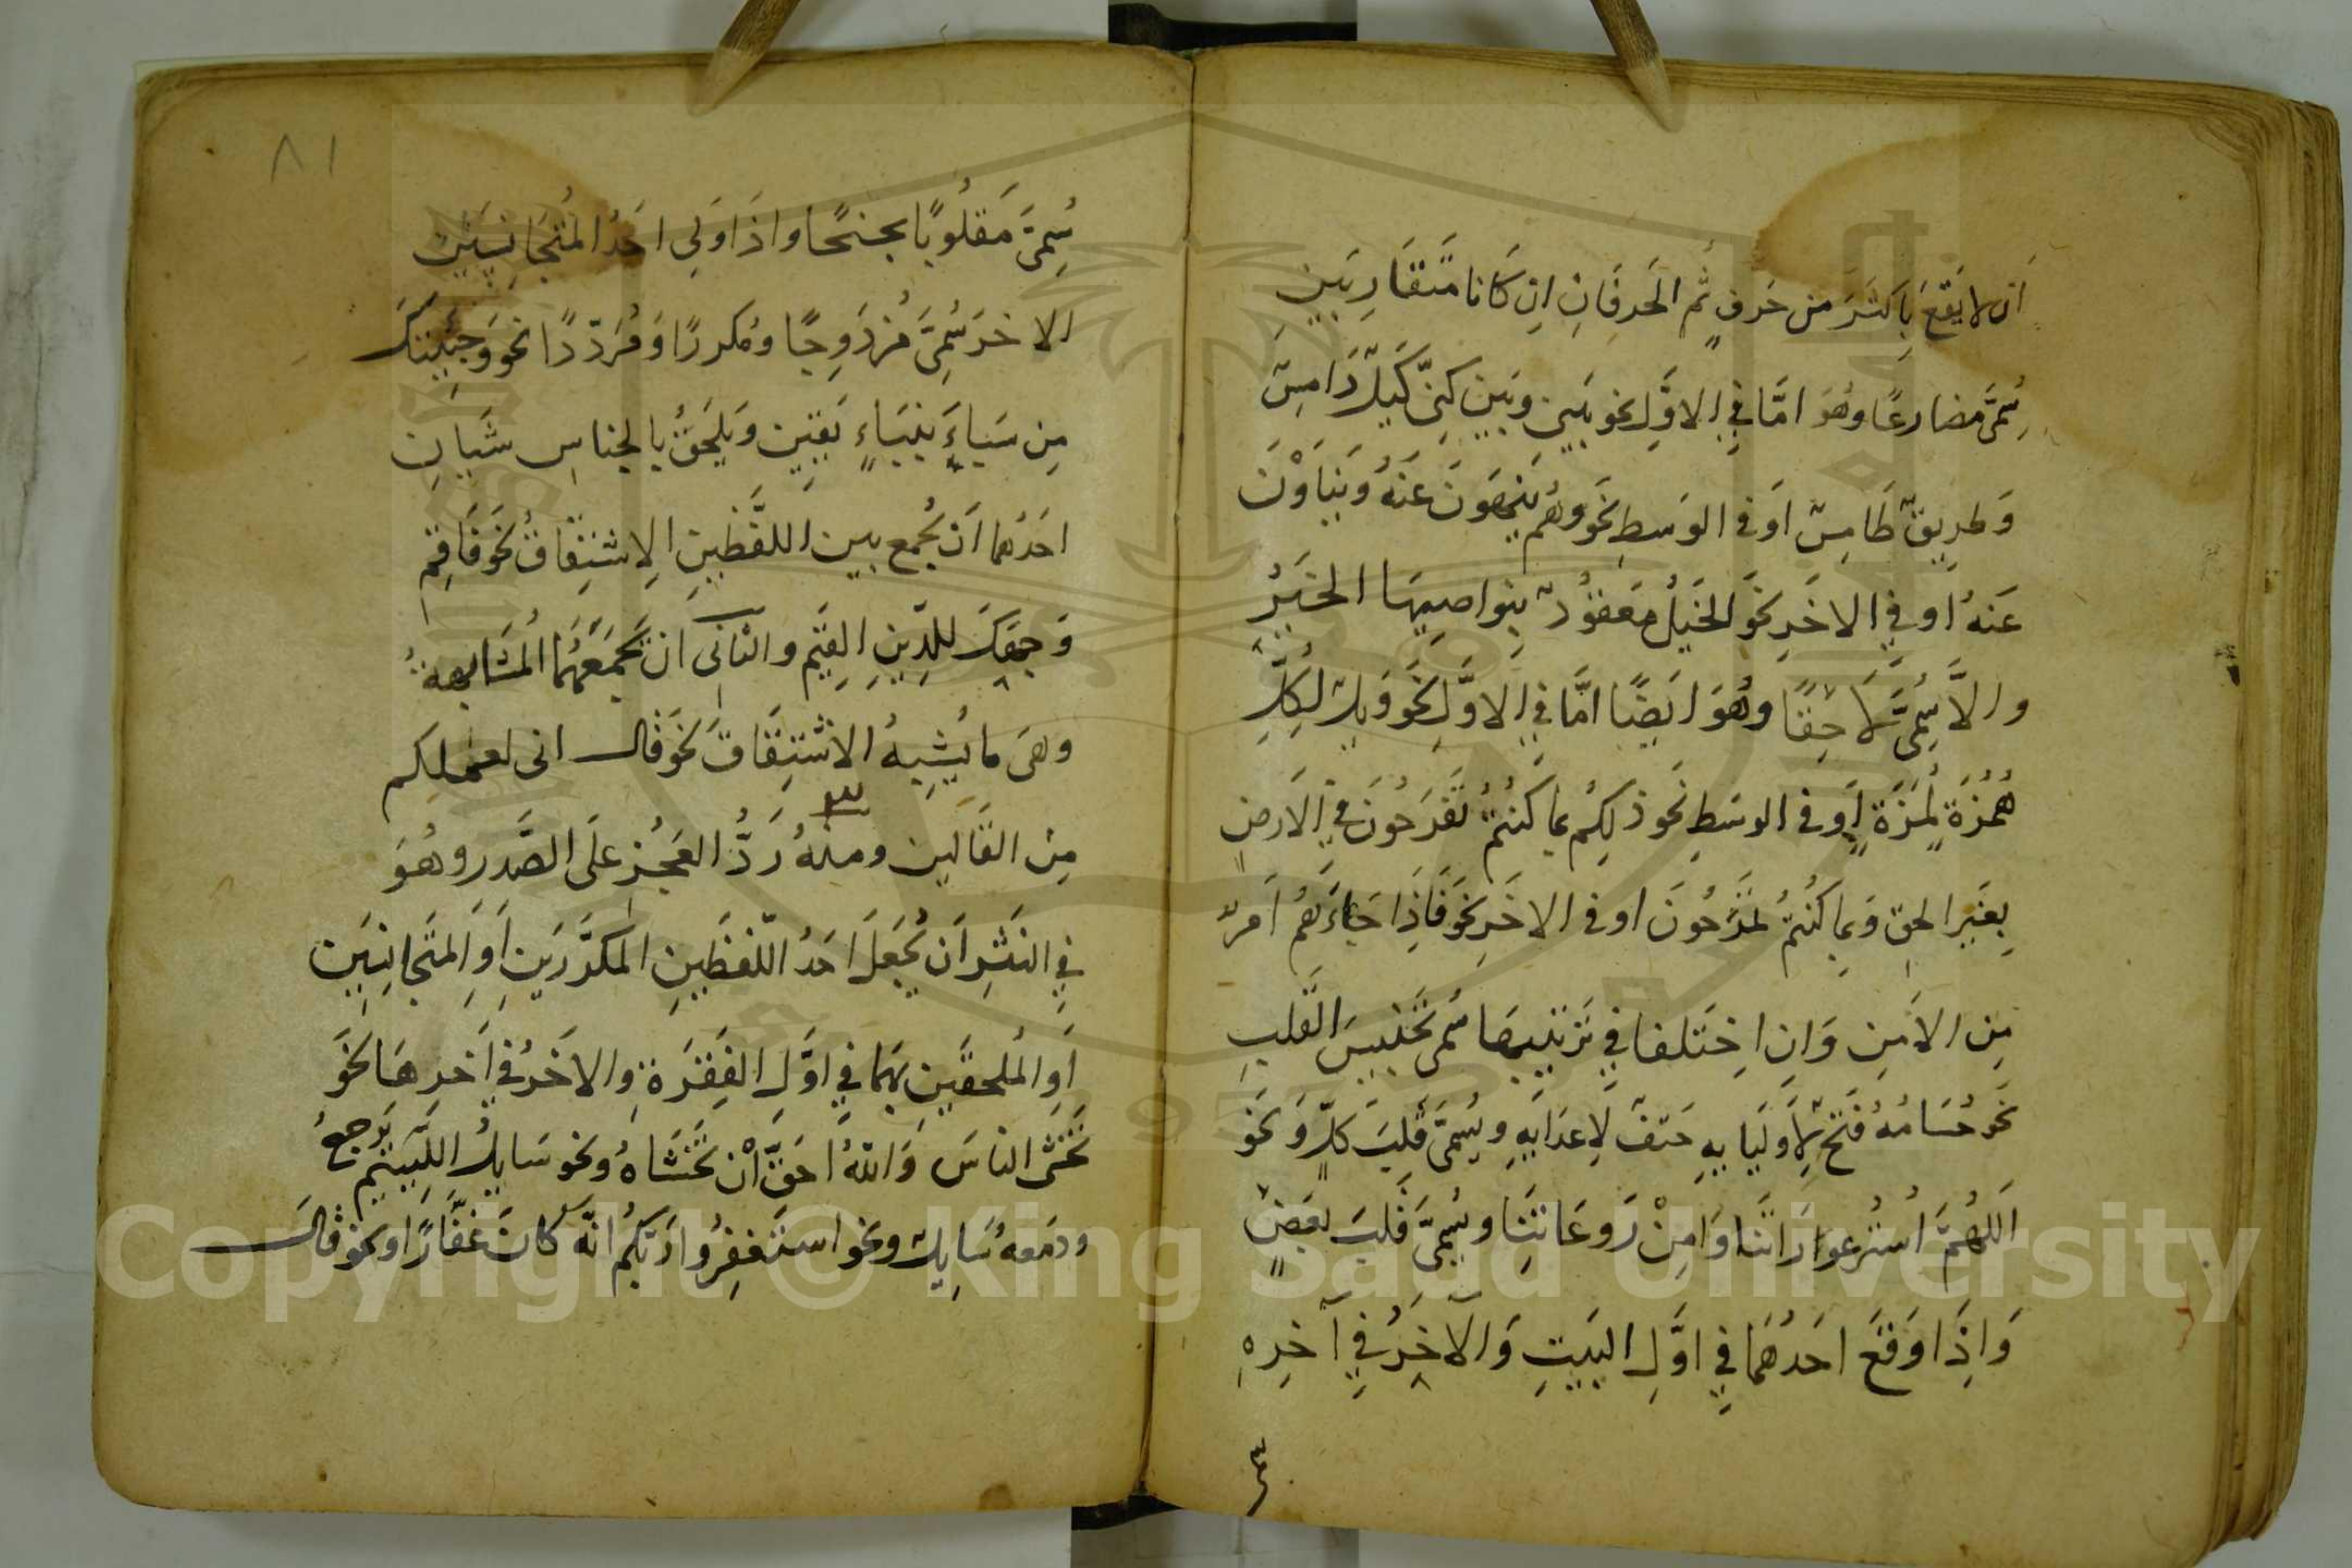 اَن لا يَقَع بِاَكثَرَ من حَرفٍ ثُم الحَرفَانِ اِن كَانا مَتقَارِبَينِ
سُمِّىَ مضارعًا وهُوَ امَّا فِي الاوَّلِ نحو بَينِى وبَين كِنّى لَيلٌ دَامِسٌ
وَطرِيقٌ طَامِسٌ اَو فى الوَسطِ نَحو وهُم يَنهَونَ عَنهُ وَيَنأَوْنَ
عَنهُ اَو فِي الاخَرِ نحَو الخَيلُ مَعقوُدٌ بِنواصِيهَا الخَيرُ
والاَّ سُمِّىَ لَاحِقًا وهُوَ ايَضًا امَّا فِي الاوَّلِ نَحو وَيلٌ لِكُلِّ
هُمَزَةٍ لُمَزَةٍ اَو فى الوسَطِ نَحو ذلِكُم بِمَا كُنتُمُ تَفرَحُونَ فِي الاَرضِ
بِغَيرِ الحِق وَبِمَا كُنُتُم تَمرَحُونَ او فى الاخَرِ نحَو فَاذِا جَاءَهُم اَمرٌ
مِن الاَمنِ وَانِ اختَلفا فِي تَرتيبِهَا سُمى تَجنِيسَ القَلبِ
نَحو حُسَامُهُ فَتحٌ لِاَولَيَايهِ حَتفٌ لِاَعدَايِهِ ويُسِمىَّ قَلبَ كلٍّ وَنَحَو
اَللهُمَّ اُستُر عورَاتَنا وَامِنْ رَوعَاتَنِا ويُسِمىَّ قَلبَ بَعضٍ
وَاذَِا وَقَعَ احَدُهُمَا فِي اوَّلِ البَيتِ وَالآخِرَُ فِي آخرِهِ
٨١
سُمِىَّ مَقلُوبًا مجنحًا واذَا وَلِى احَدُ المُتجَانِسَينِ
الاخرَ سُمِىَّ مُزدَوِجًا ومُكررًا وَمُرَدّدًا نحو وَجِئتكَ
مِن سَبَاءٍ بِنَبَاءٍ يَقيِن وَيَلحَقُ بالجناسِ شَيَانِ
احَدُهُما اَن يُجمع بين اللفَّظينِ الاِشتِقاقُ نحَو فَاقِم
وَجهَكَ للدِّينِ القِيَّم والثانى ان تجَمَعَهُما المُشَابهةُ
وهىَ ما يُشِبهُ الاشتِقَاقَ نَحو قالـ انى لعملِكم
مِن القَالَين ومنهُ رَدُّ العَجُزِ علَى الصَّدر وهُوَ
فِي النثرِ اَن يُجعَلَ اَحَدُ اللّفظَينِ المكرَّرَينِ اَوِ المتَجانِسَينِ
اَوِ المُلحقَينِ بِهمَا فِي اوَّلِ الفِقرَةِ والاخَرُ فِي اَخرِهَا نحَو
تَخَشَى الناسَ وَاللهُ احَقُّ اَنْ تَخشَاهُ ونحو سَايلُ اللئِّيمِ يَرجعُ
ودَمَعهُ سَايلٌ ونحو استَغفِرُوا رَبكُم انّهُ كانَ غفَّارًا ونحو قالـ